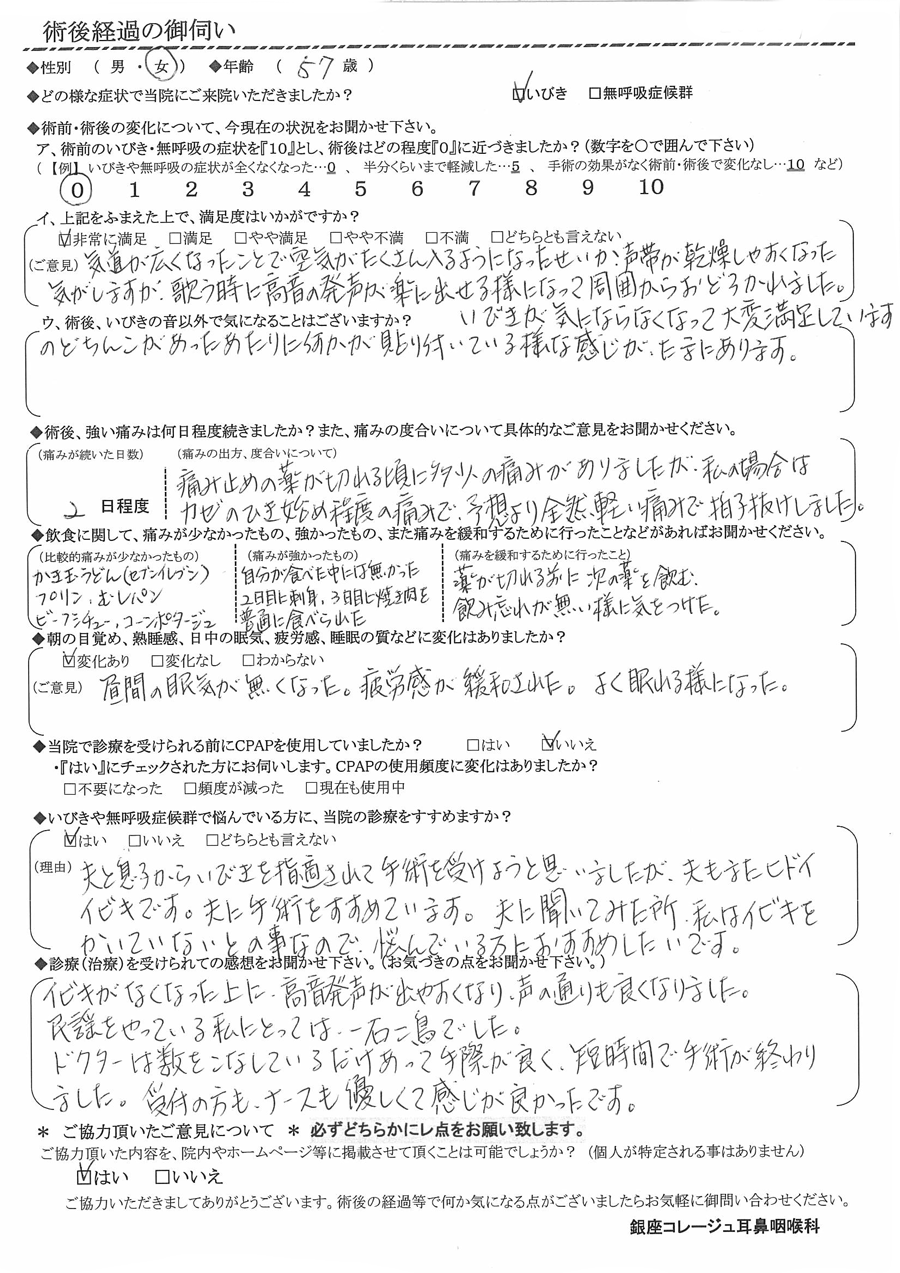 術後経過の御伺い
◆性別 （ 男 ・ 女 ） ◆年齢 （ 57 歳 ）
◆どの様な症状で当院にご来院いただきましたか？ ☑いびき □無呼吸症候群
◆術前・術後の変化について、今現在の状況をお聞かせ下さい。
ア、術前のいびき・無呼吸の症状を『10』とし、術後はどの程度『0』に近づきましたか？（数字を○で囲んで下さい）
（【例】いびきや無呼吸の症状が全くなくなった…0 、 半分くらいまで軽減した…5 、 手術の効果がなく術前・術後で変化なし…10 など）
0 1 2 3 4 5 6 7 8 9 10
イ、上記をふまえた上で、満足度はいかがですか？
☑非常に満足 □満足 □やや満足 □やや不満 □不満 □どちらとも言えない
（ご意見） 気道が広くなったことで空気がたくさん入るようになったせいか、声帯が乾燥しやすくなった
気がしますが、歌う時に高音の発声が楽に出せる様になって周囲からおどろかれました。
いびきが気にならなくなって大変満足しています
ウ、術後、いびきの音以外で気になることはございますか？
のどちんこがあったあたりに何かが貼り付いている様な感じが、たまにあります。
◆術後、強い痛みは何日程度続きましたか？また、痛みの度合いについて具体的なご意見をお聞かせください。
（痛みが続いた日数） （痛みの出方、度合いについて）
痛み止めの薬が切れる頃に多少の痛みがありましたが、私の場合は
2 日程度 カゼのひき始め程度の痛みで、予想より全然軽い痛みで拍子抜けしました。
◆飲食に関して、痛みが少なかったもの、強かったもの、また痛みを緩和するために行ったことなどがあればお聞かせください。
（比較的痛みが少なかったもの） （痛みが強かったもの） （痛みを緩和するために行ったこと）
かき玉うどん（セブンイレブン） 自分が食べた中には無かった 薬が切れる前に次の薬を飲む。
プリン、むしパン 2日目に刺身、3日目に焼き肉を 飲み忘れが無い様に気をつけた。
ビーフシチュー、コーンポタージュ 普通に食べられた
◆朝の目覚め、熟睡感、日中の眠気、疲労感、睡眠の質などに変化はありましたか？
☑変化あり □変化なし □わからない
（ご意見） 昼間の眠気が無くなった。疲労感が緩和された。よく眠れる様になった。
◆当院で診療を受けられる前にCPAPを使用していましたか？ □はい ☑いいえ
・『はい』にチェックされた方にお伺いします。CPAPの使用頻度に変化はありましたか？
□不要になった □頻度が減った □現在も使用中
◆いびきや無呼吸症候群で悩んでいる方に、当院の診療をすすめますか？
☑はい □いいえ □どちらとも言えない
（理由） 夫と息子からいびきを指適されて手術を受けようと思いましたが、夫もまたヒドイ
イビキです。夫に手術をすすめています。夫に聞いてみた所、私はイビキを
かいていないとの事なので、悩んでいる方におすすめしたいです。
◆診療（治療）を受けられての感想をお聞かせ下さい。（お気づきの点をお聞かせ下さい。）
イビキがなくなった上に、高音発声が出やすくなり、声の通りも良くなりました。
民謡をやっている私にとっては、一石二鳥でした。
ドクターは数をこなしているだけあって手際が良く、短時間で手術が終わり
ました。受付の方も、ナースも優しくて感じが良かったです。
＊ ご協力頂いたご意見について ＊ 必ずどちらかにレ点をお願い致します。
ご協力頂いた内容を、院内やホームページ等に掲載させて頂くことは可能でしょうか？ （個人が特定される事はありません）
☑はい □いいえ
ご協力いただきましてありがとうございます。術後の経過等で何か気になる点がございましたらお気軽に御問い合わせください。
銀座コレージュ耳鼻咽喉科